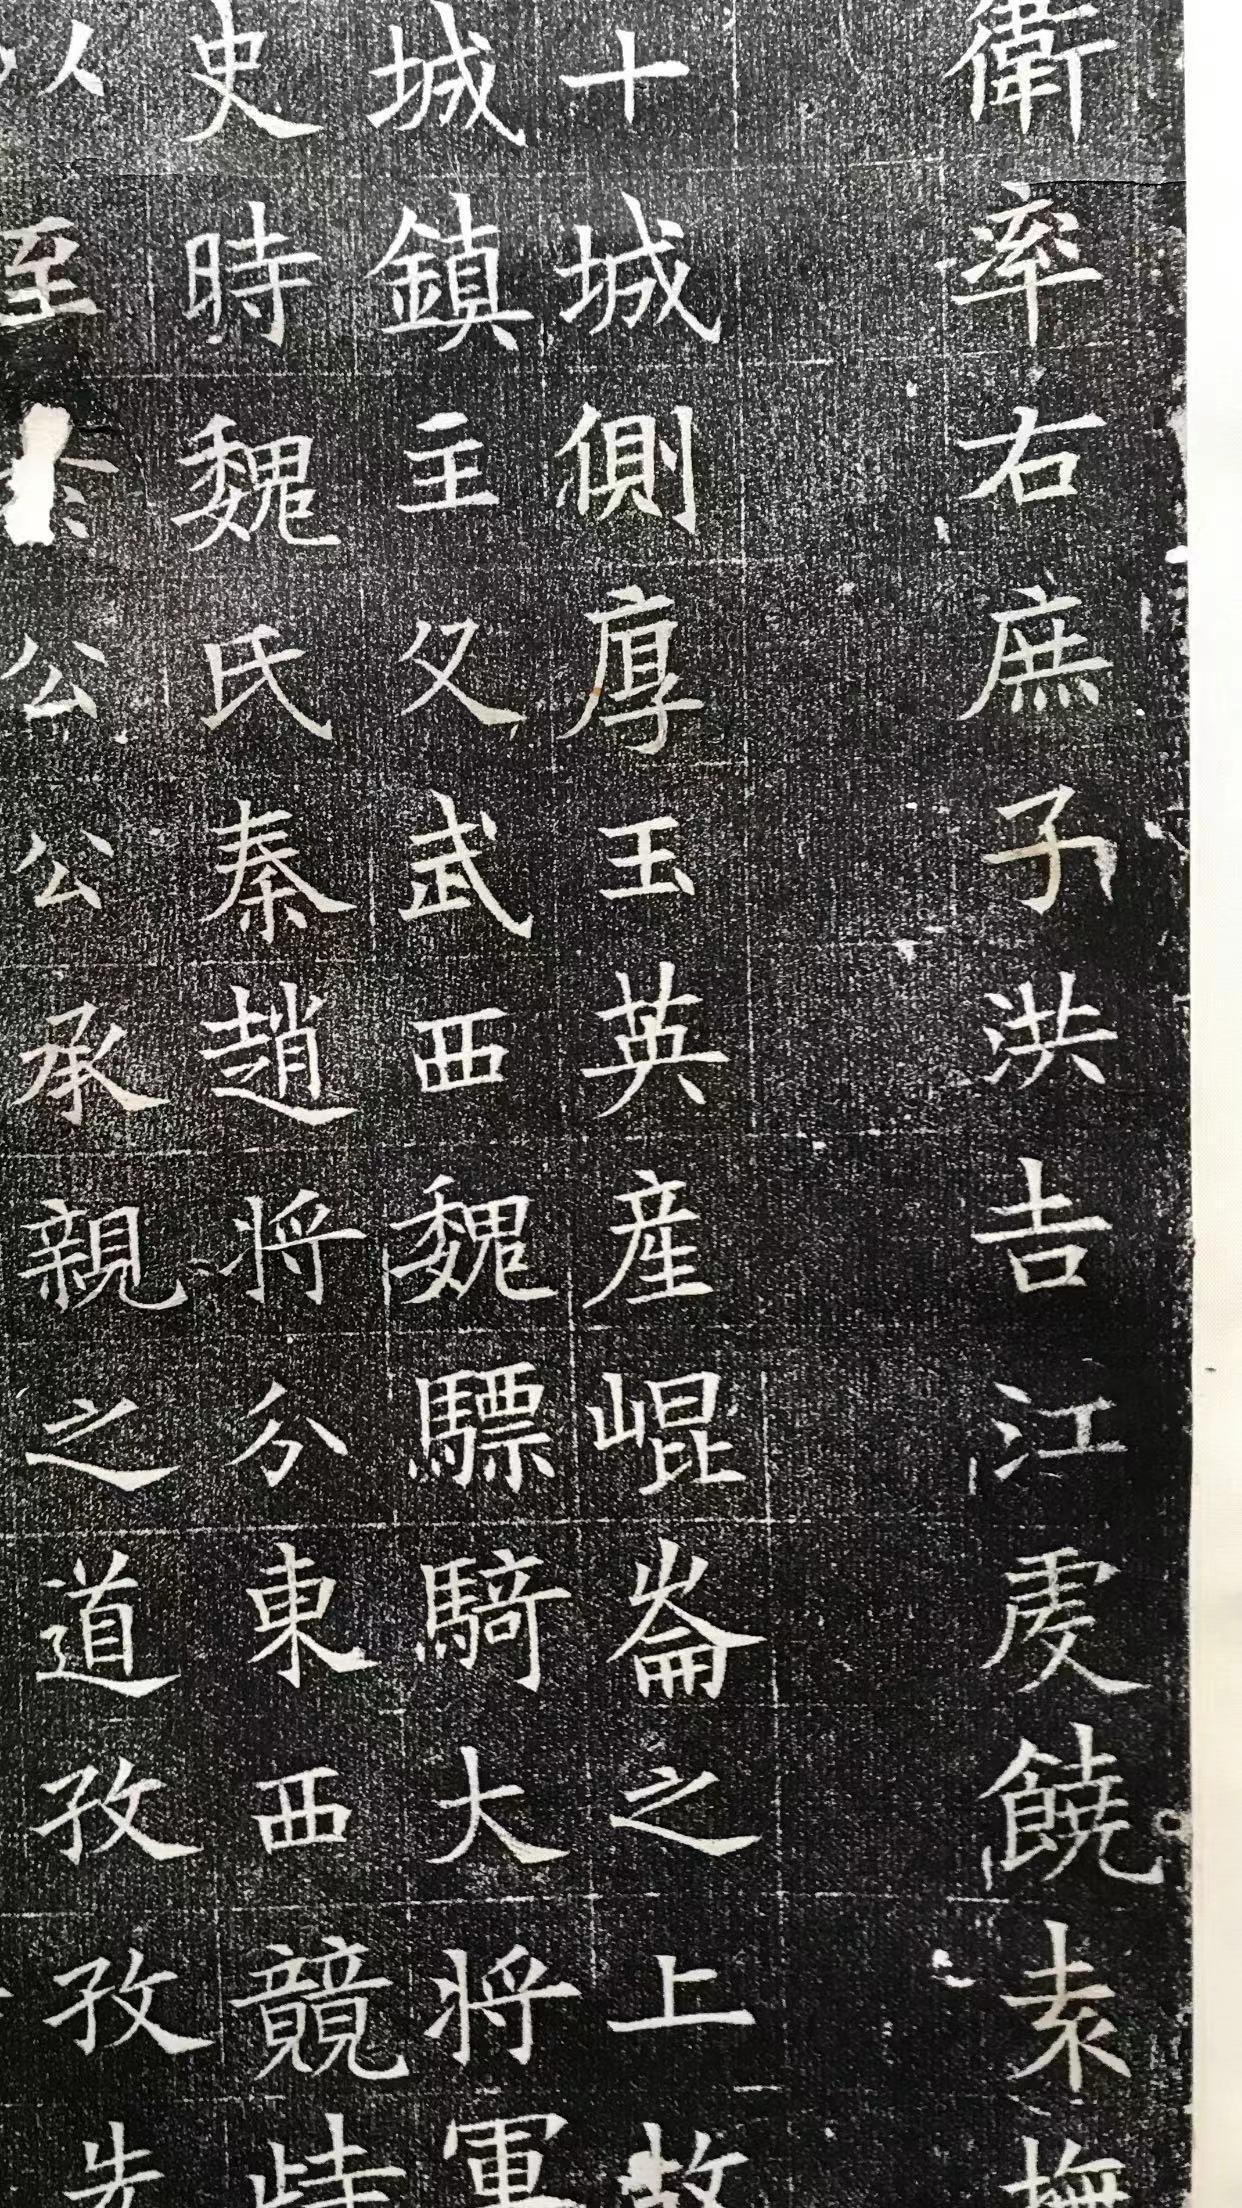 衛率右庶子洪吉江虔饒袁撫
十城側厚王英産崐崙之上故
城鎮主又武西魏驃騎大將軍
史時魏氏秦趙將分東西競
以至公公承親之道孜孜先